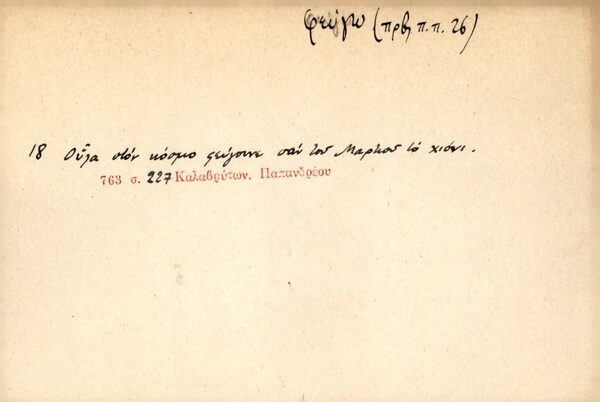 φεύγω (πρβ π.π. 26)
18 Οὖλα στόν κόσμο φεύγουνε σάν τοῦ Μαρτιοῦ τό χιόνι.
763 σ. 227 Καλαβρύτων. Παπανδρέου